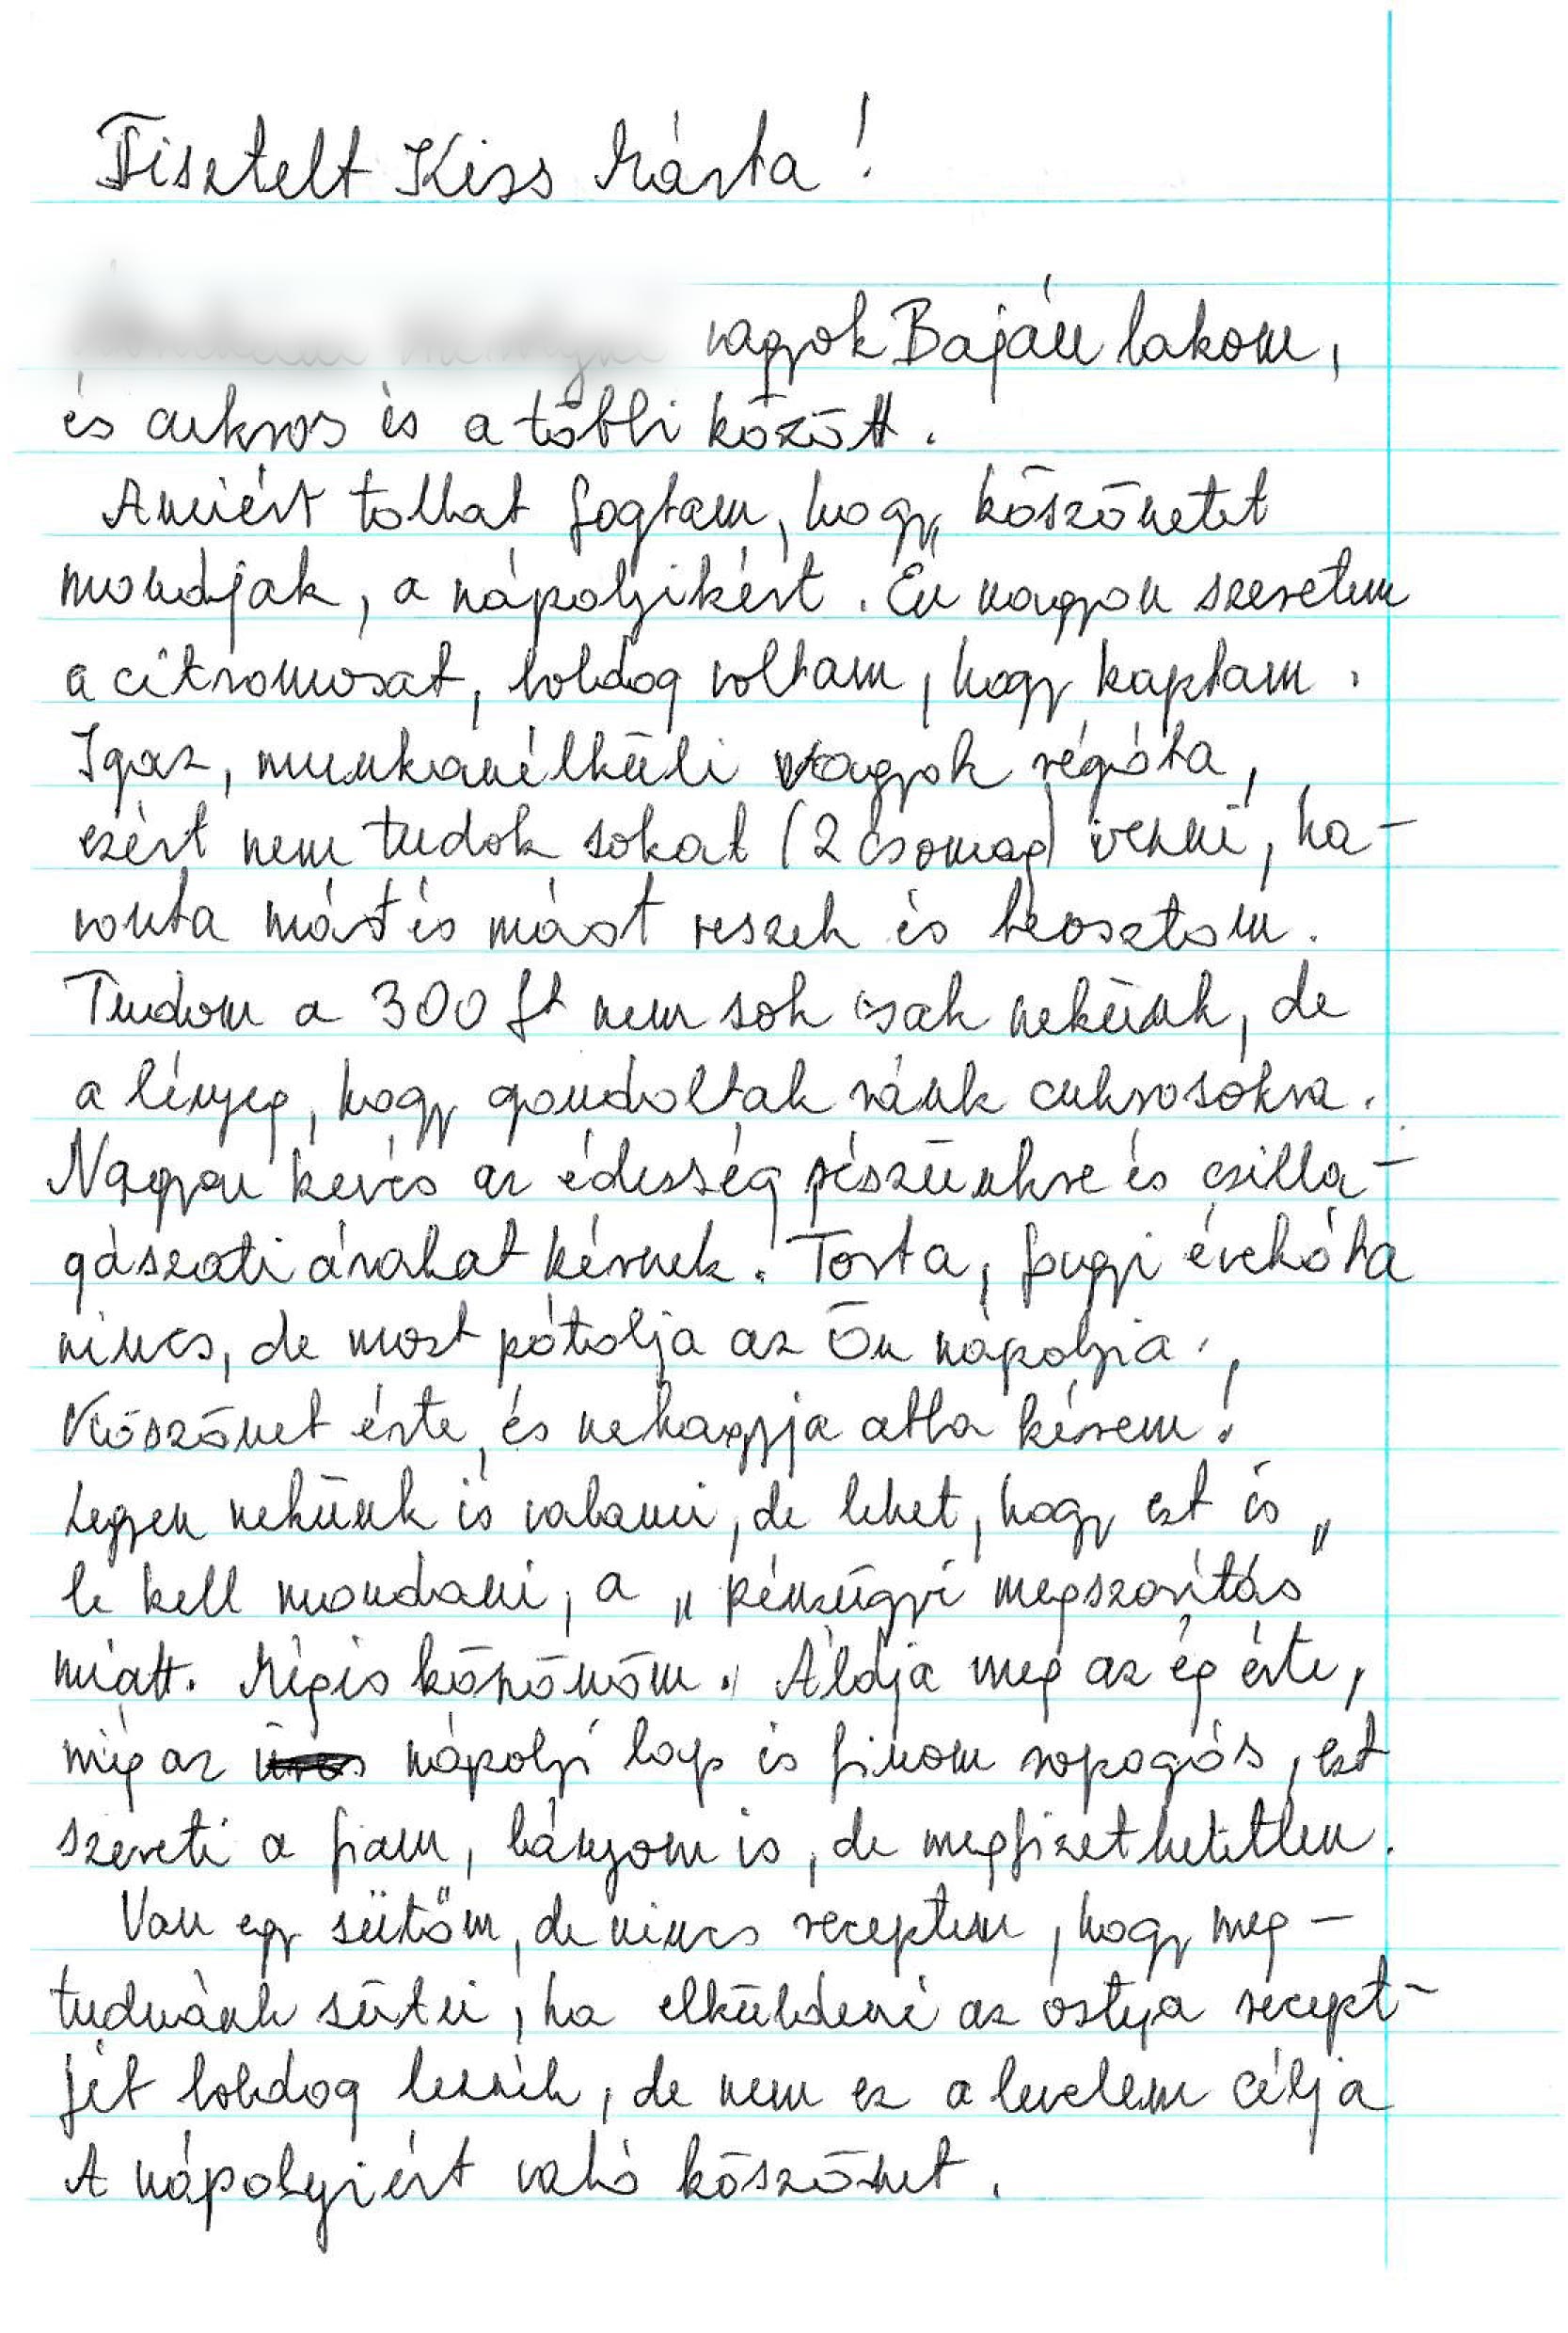 Tisztelt Kiss Márta!
vagyok Baján lakom,
és cukros is a többi között.
Amiért tollat fogtam, hogy köszönetet
mondjak, a nápolyikért. Én nagyon szeretem
a citromosat, boldog voltam, hogy kaptam.
Igaz, munkanélküli vagyok régóta,
ezért nem tudok sokat (2 csomag) venni, ha-
vonta mást és mást veszek és beosztom.
Tudom a 300 ft nem sok csak nekünk, de
a lényeg, hogy gondoltak ránk cukrosokra.
Nagyon kevés az édesség részünkre és csilla-
gászati árakat kérnek! Torta, fagyi évek óta
nincs, de most pótolja az Ön nápolyia.
Köszönet érte, és nehagyja abba kérem!
Legyen nekünk is valami, de lehet, hogy ezt is
le kell mondani, a „pénzügyi megszorítás"
miatt. Mégis köszönöm. Áldja meg az ég érte,
még az nápolyi lap is finom ropogós, ezt
szereti a fiam, lányom is, de megfizethetetlen.
Van egy sütőm, de nincs receptem, hogy meg-
tudnánk sütni, ha elküldené az ostya recept-
jét boldog lennék, de nem ez a levelem célja
A nápolyiért való köszönet.